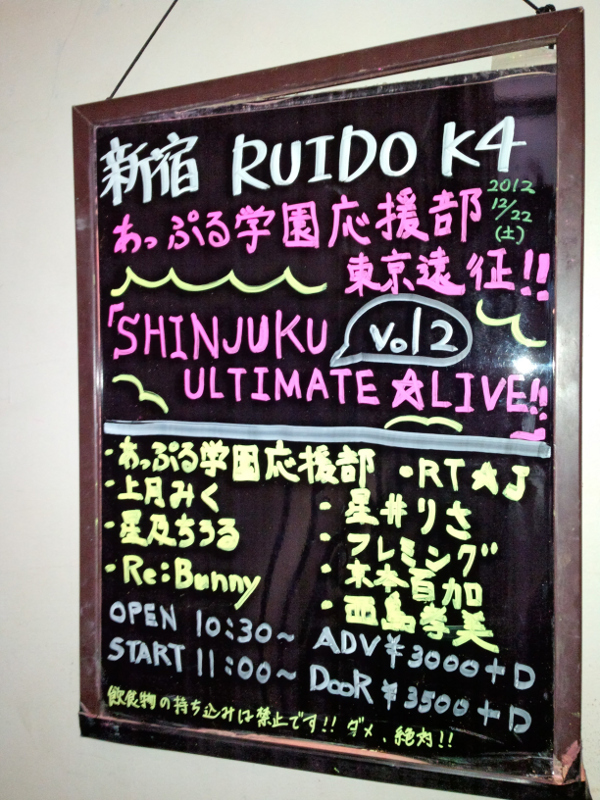 新宿 RUIDO K4
2012
12/22
(土)
あっぷる学園応援部
東京遠征!!
「SHINJUKU Vol2
ULTIMATE☆LIVE!!」
・あっぷる学園応援部
・RT☆J
・上月みく
・星井りさ
・星及ちうる
・フレミング
・Re:Bunny
・末本百加
・西島孝美
OPEN 10:30~ ADV ¥3000+D
START 11:00~ DooR ¥3500+D
飲食物の持ち込みは禁止です!! ダメ、絶対!!